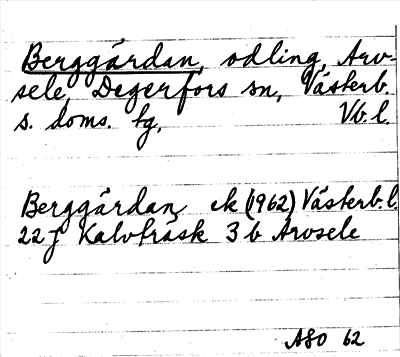 Berggårdan, odling, Arv-
sele, Degerfors sn, Västerb.
s. doms. tg, Vb. l.
Berggårdan ek (1962) Västerb. l.
22 J Kalvträsk 3 b Arvsele
ASO 62